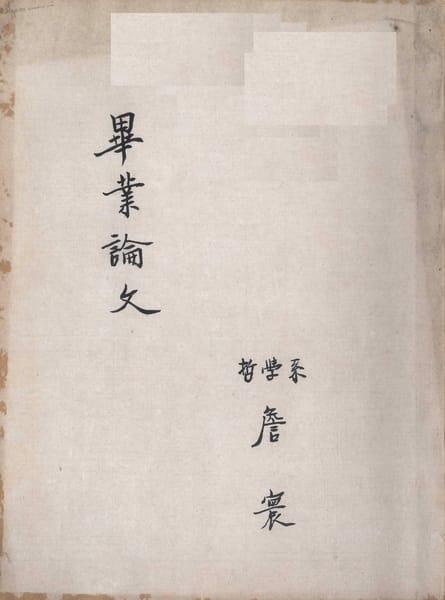 畢業論文
哲學系
詹寰